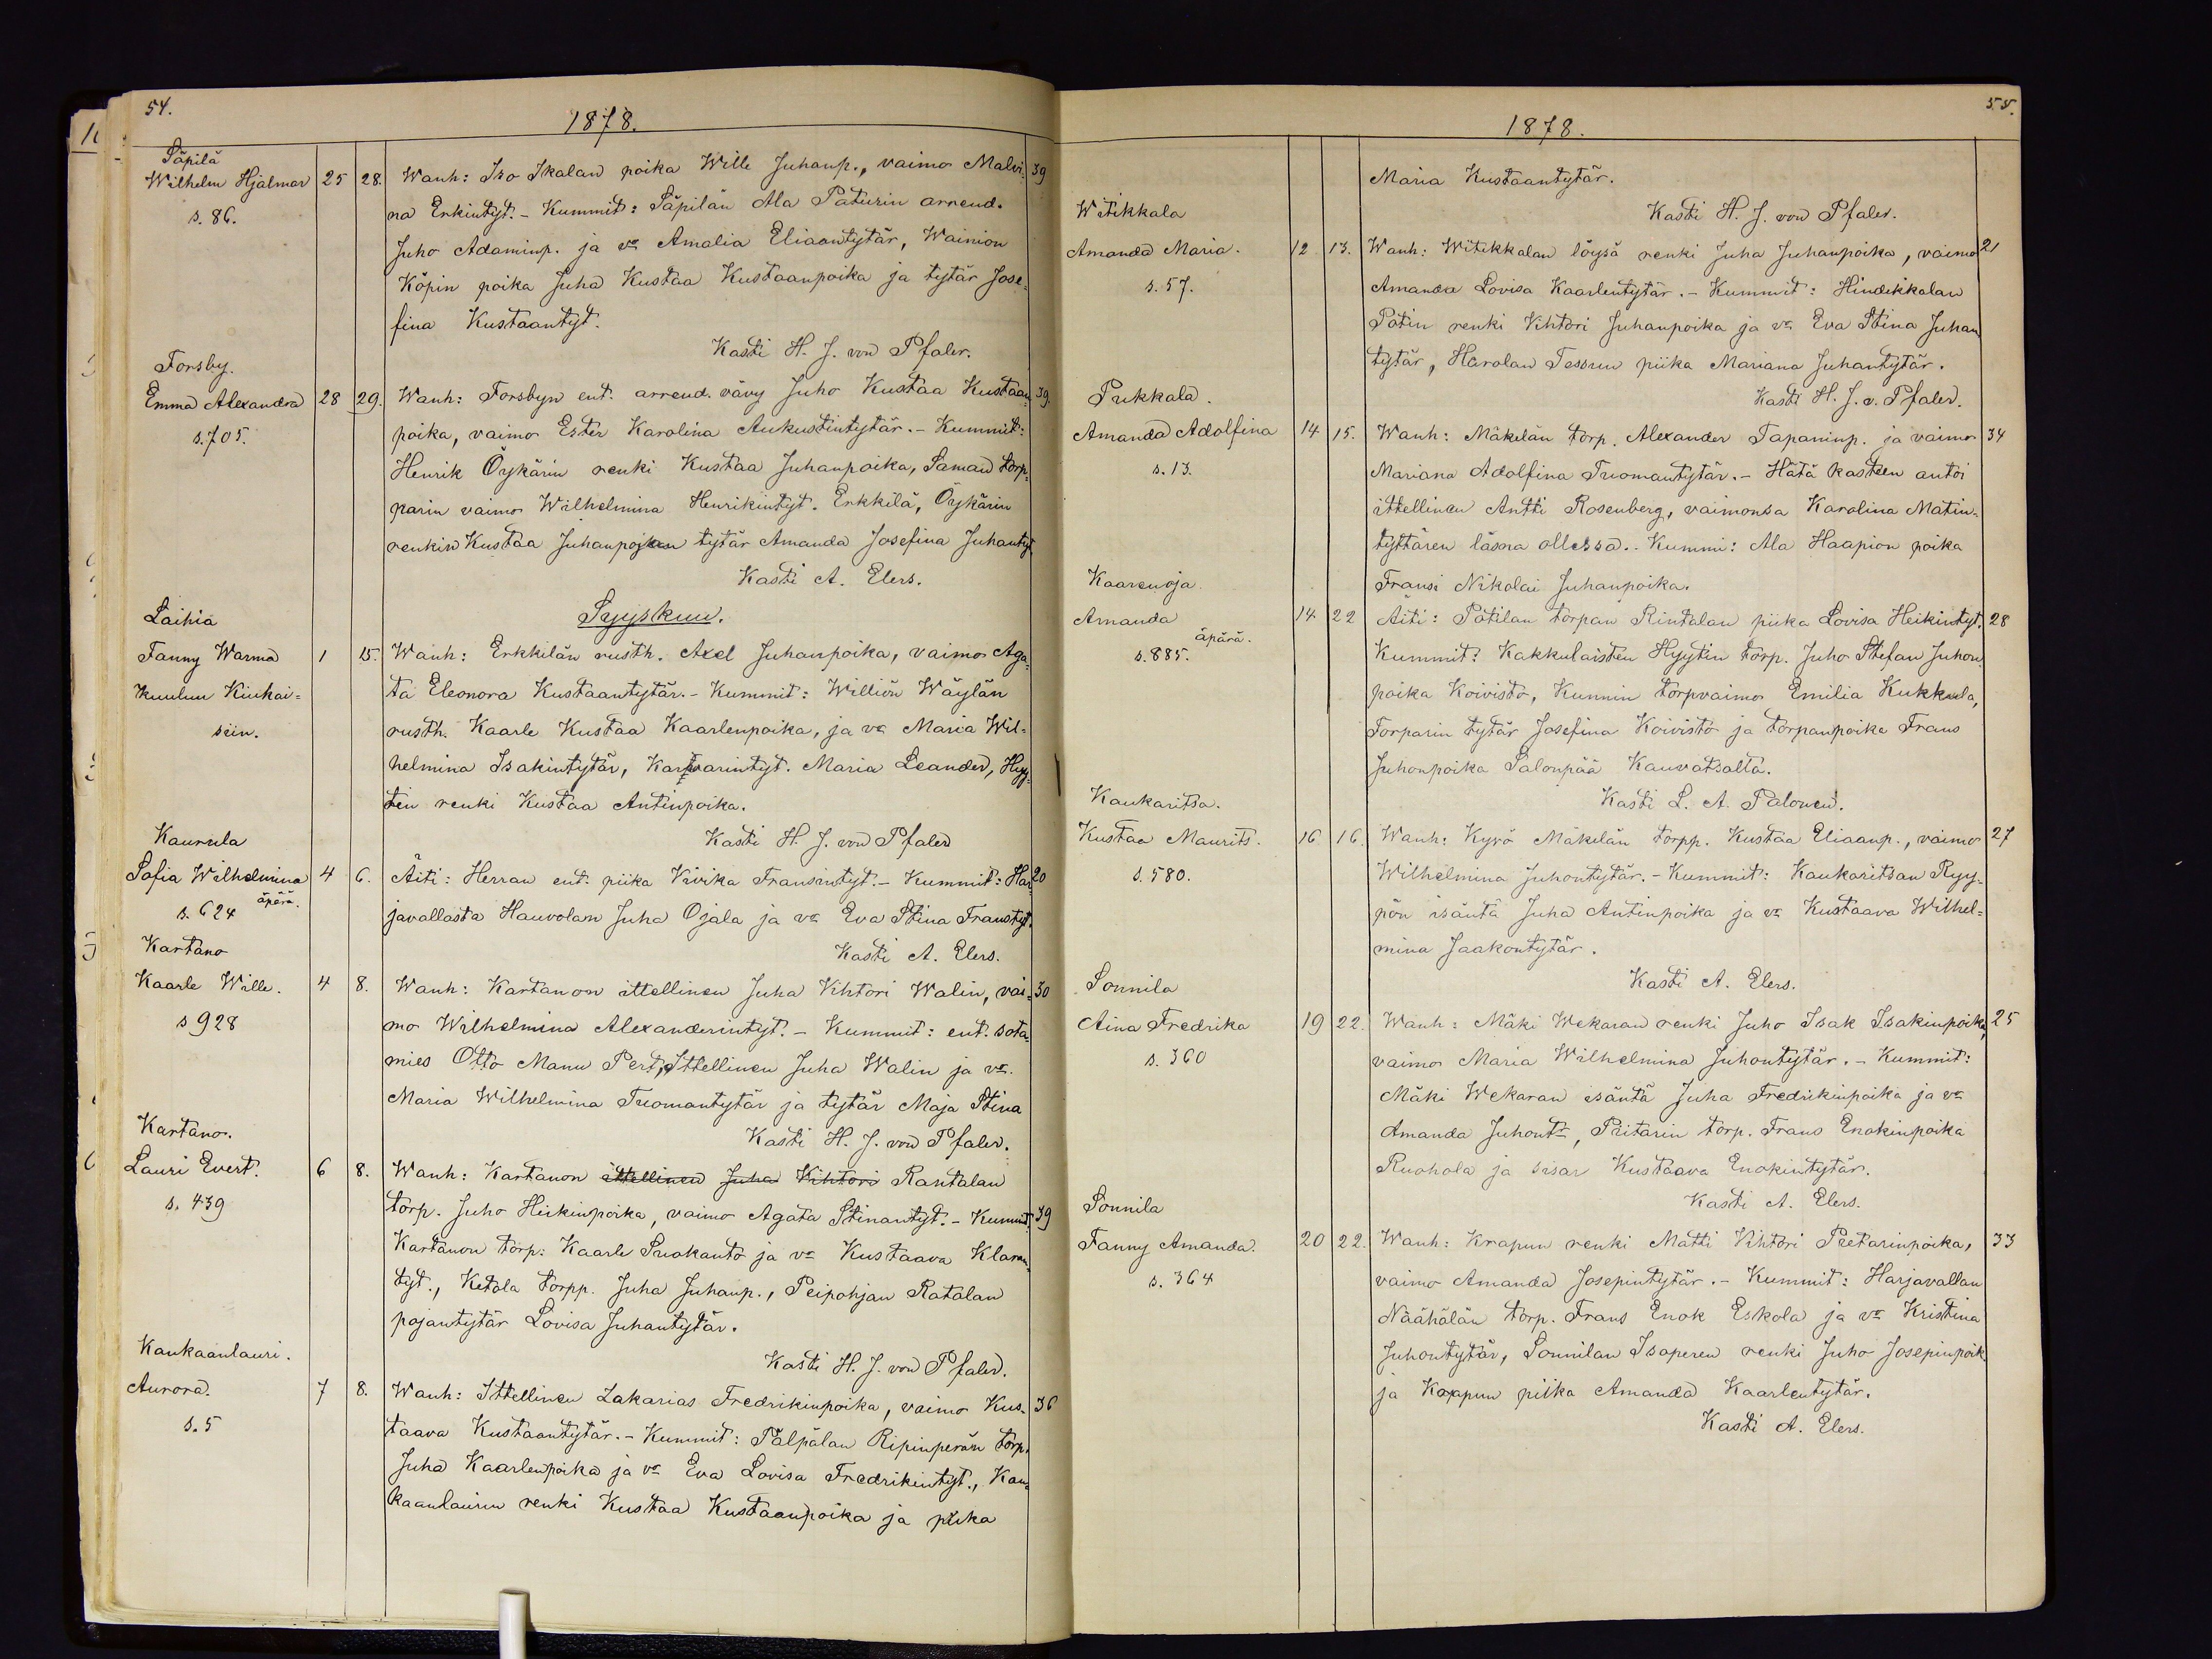 54.
1878.
Säpilä
Wilhelm Hjalmar 25 28. Wanh: Iso Ikalan poika Wille Juhanp., vaimo Malvi= 39
s. 86. na Erkintyt. - Kummit: Säpilän Ala Paturin arrend.
Juho Adaminp. ja vo Amalia Eliaantytär, Wainion
Köpin poika Juha Kustaa Kustaanpoika ja tytär Jose=
fina Kustaantyt.
Kasti H. J. von Pfaler.
Forsby.
Emma Alexandra 28 29. Wanh: Forsbyn ent. arrend. vävy Juho Kustaa Kustaan= 39.
s. 705. poika, vaimo Ester Karolina Aukustintytär. - Kummit:
Henrik Öykärin renki Kustaa Juhanpoika, Saman torp=
parin vaimo Wilhelmina Henrikintyt. Erkkilä, Öykärin
renkin Kustaa Juhanpojan tytär Amanda Josefina Juhantyt
Kasti A. Elers.
Syyskuu.
Laihia
Fanny Warma 1 15. Wanh: Erkkilän rusth. Axel Juhanpoika, vaimo Aga=
kuuluu Kiukai= ta Eleonora Kustaantytär. - Kummit: Williön Wäylän
siin. rusth. Kaarle Kustaa Kaarlenpoika, ja vo Maria Wil=
helmina Isakintytär, Karvarintyt. Maria Leander, Hyy=
tin renki Kustaa Antinpoika.
Kasti H. J. von Pfaler
Kaurula
Sofia Wilhelmina 4 6. Äiti: Herran ent. piika Vivika Fransintyt. - Kummit: Har= 20
äpärä.
s. 624 javallasta Hauvolan Juha Ojala ja vo Eva Stina Franstyt.
Kasti A. Elers.
Kartano
Kaarle Wille. 4 8. Wanh: Kartanon ittellinen Juha Vihtori Walin, vai= 30
s 928 mo Wilhelmina Alexanderintyt. - Kummit: ent. sota=
mies Otto Manu Pert, Ittellinen Juha Walin ja vo.
Maria Wilhelmina Tuomantytär ja tytär Maja Stina
Kasti H. J. von Pfaler.
Kartano.
Lauri Evert. 6 8. Wanh: Kartanon ittellinen Juha Vihtori Rantalan
s. 439 torp. Juho Heikinpoika, vaimo Agata Stinantyt. - Kummit: 39
Kartanon torp: Kaarle Suokanto ja vo Kustaava Klaran=
tyt., Ketola torpp. Juha Juhanp., Peipohjan Ratalan
pojantytär Lovisa Juhantytär.
Kasti H. J. von Pfaler.
Kankaanlauri.
Aurora. 7 8. Wanh: Ittellinen Zakarias Fredrikinpoika, vaimo Kus= 36
s. 5 taava Kustaantytär. - Kummit: Pälpälän Ripinperän torp.
Juha Kaarlenpoika ja vo Eva Lovisa Fredrikintyt., Kan=
kaanlaurin renki Kustaa Kustaanpoika ja piika
55.
1878.
Maria Kustaantytär.
Kasti H. J. von Pfaler.
Witikkala
Amanda Maria. 12 13. Wanh: Witikkalan löysä renki Juha Juhanpoika, vaimo 21
s. 57. Amanda Lovisa Kaarlentytär. - Kummit: Hindikkalan
Pätin renki Vihtori Juhanpoika ja vo Eva Stina Juhan
tytär, Harolan Tessun piika Mariana Juhantytär.
Kasti H. J. v. Pfaler.
Pukkala.
Amanda Adolfina 14 15. Wanh: Mäkelän torp. Alexander Tapaninp. ja vaimo 34
s. 13. Mariana Adolfina Tuomantytär. - Hätä kasteen antoi
ittellinen Antti Rosenberg, vaimonsa Karolina Matin=
tyttären läsnä ollessa. - Kummi: Ala Haapion poika
Fransi Nikolai Juhanpoika.
Kaarenoja.
Amanda 14 22 Äiti: Pätilän torpan Rintalan piika Lovisa Heikintyt. 28
äpärä.
s. 885. Kummit: Kakkulaisten Hyytin torp. Juho Stefan Juhon
poika Koivisto, Kunnin torpvaimo Emilia Kukkula,
Torparin tytär Josefina Koivisto ja torpanpoika Frans
Juhonpoika Salonpää Kauvatsalta.
Kasti L. A. Palonen.
Kaukaritsa.
Kustaa Maurits. 16 16. Wanh: Kyrö Mäkilän torpp. Kustaa Eliaanp., vaimo 27
s. 580. Wilhelmina Juhontytär. - Kummit: Kaukaritsan Ryy=
pön isäntä Juha Antinpoika ja vo Kustaava Wilhel=
mina Jaakontytär.
Kasti A. Elers.
Sonnila
Aina Fredrika 19 22. Wanh: Mäki Wekaran renki Juho Isak Isakinpoika, 25
s. 360 vaimo Maria Wilhelmina Juhontytär. - Kummit:
Mäki Wekaran isäntä Juha Fredrikinpoika ja vo
Amanda Juhontr, Pritarin torp. Frans Enokinpoika
Ruohola ja sisar Kustaava Enokintytär.
Kasti A. Elers.
Sonnila
Fanny Amanda. 20 22. Wanh: Krapun renki Matti Vihtori Pietarinpoika, 33
s. 364 vaimo Amanda Josepintytär. - Kummit: Harjavallan
Näähälän torp. Frans Enok Eskola ja vo Kristina
Juhontytär, Sonnilan Isoperen renki Juho Josepinpoik
ja Krapun piika Amanda Kaarlentytär.
Kasti A. Elers.